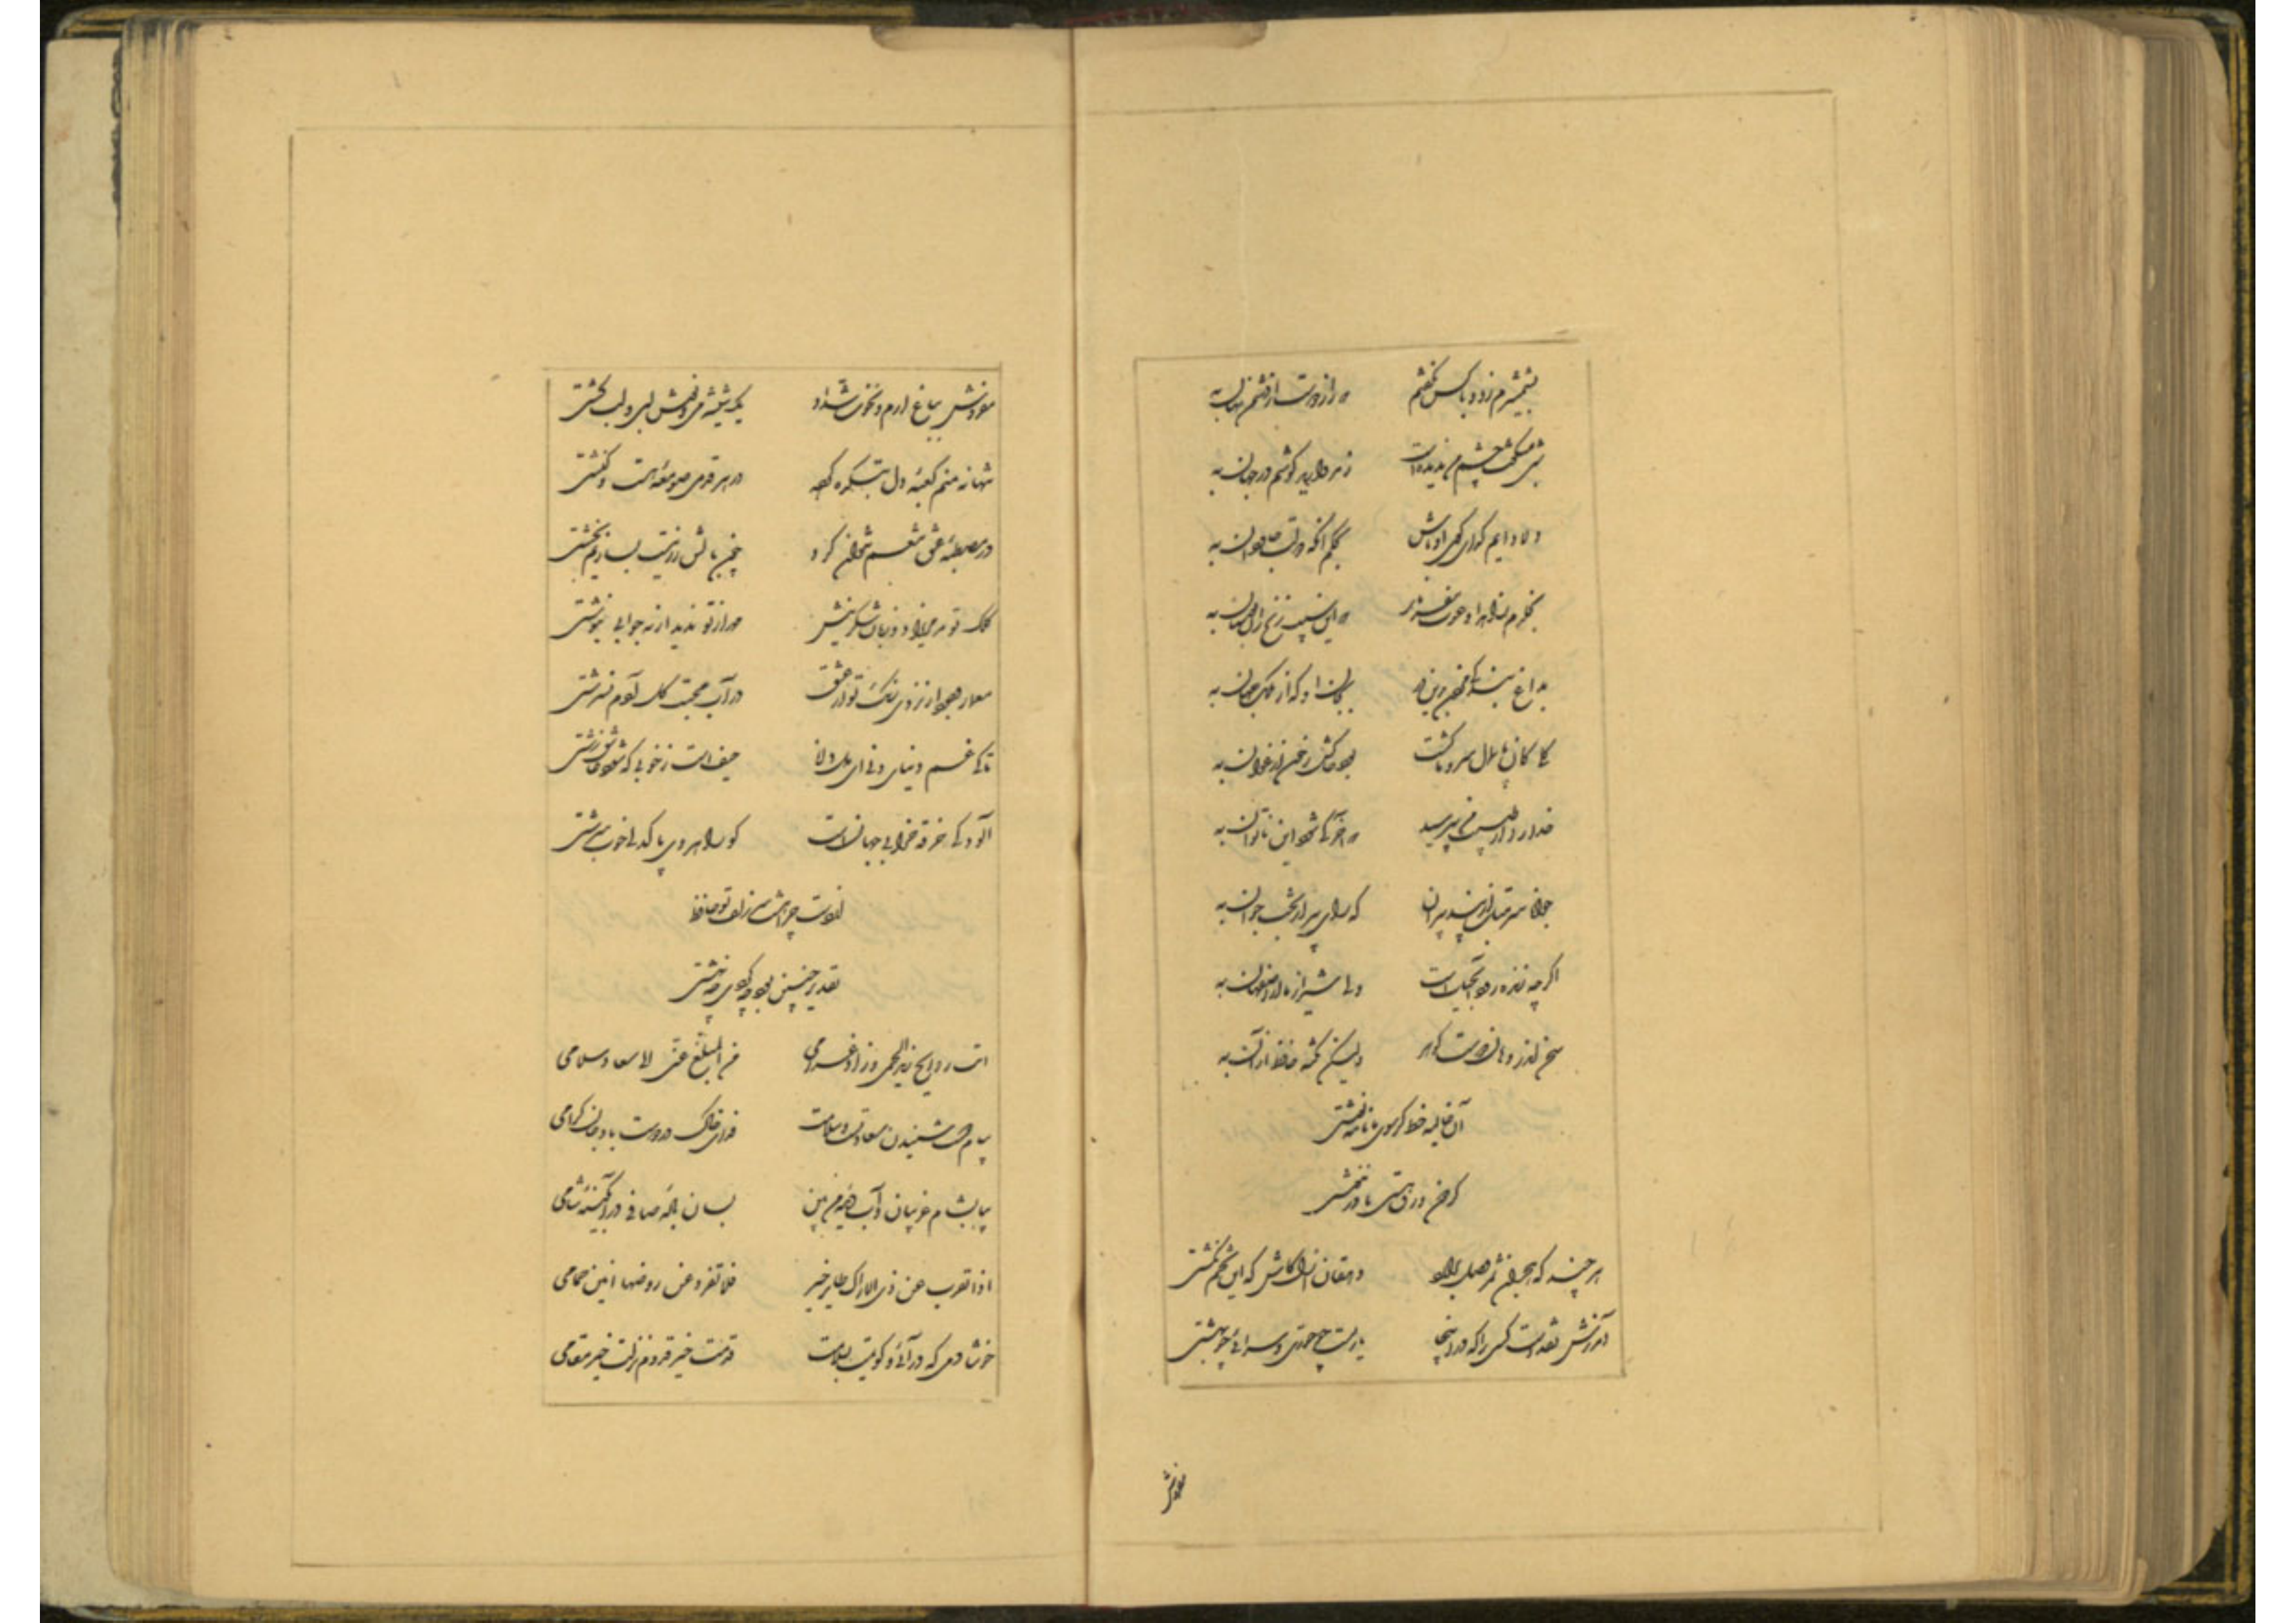 بشمشیرم زد و با کس نگفتم که راز دوست از دشمن نهان به
شبی میگفت چشم کس ندیده است ز مروارید گوشم در جهان به
دلا دایم گدای کوی او باش بحکم آنکه دولت جاودان به
بخلدم زاهدا دعوت مفرما که این سیب زنخ زان بوستان به
بداغ بندگی مردن برین در بجان او که از ملک جهان به
گلی کان پایمال سرو ما گشت بود خاکش ز خون ارغوان به
خدا را از طبیب من بپرسید که آخر کی شود این ناتوان به
جوانا سر متاب از پند پیران که رای پیر از بخت جوان به
اگر چه زنده رود آب حیاتست ولی شیراز ما از اصفهان به
سخن اندر دهان دوست گوهر ولیکن گفته حافظ از آن به
آن غالیه خط گر سوی ما نامه نوشتی
گردون ورق هستی ما در ننوشتی
هر چند که هجران ثمر وصل برآرد دهقان ازل کاش که این تخم نکشتی
آمرزش نقدست کسی را که در اینجا یاریست چو حوری و سرائی چو بهشتی
مفروش
مفروش بباغ ارم و نخوت شداد یک شیشه می و نوش لبی و لب کشتی
تنها نه منم کعبهٔ دل بتکده کرده در هر قدمی صومعهٔ هست و کنشتی
در مصطبهٔ عشق تنعم نتوان کرد چون بالش زر نیست بسازیم بخشتی
کلک تو مریزاد زبان شکرینش مهر از تو ندید ار نه جوابی بنوشتی
معمار وجود ار نزدی رنگ تو از عشق در آب محبت گل آدم نسرشتی
تا کی غم دنیای دنی ای دل دانا حیف است ز خوبی که شود عاشق زشتی
آلودگی خرقه خرابی جهانست کو راهروی پاکدلی خوب سرشتی
از دست چرا هشت سر زلف تو حافظ
تقدیر چنین بود چه کردی که نهشتی
اتت روایح رند الحمی وزاد غرامی من المبلغ عنی الی سعاد سلامی
پیام دوست شنیدن سعادتست و سلامت فدای خاک در دوست باد جان گرامی
بیا بشام غریبان و آب دیده من بین بسان بادهٔ صافی در آبگینهٔ شامی
اذا تقرب عن ذی الاراک طایر خیر فلا تفرد عن روضها انین حمامی
خوشا دمی که در آئی و گویمت بسلامت قدمت خیر قدوم نزلت خیر مقامی